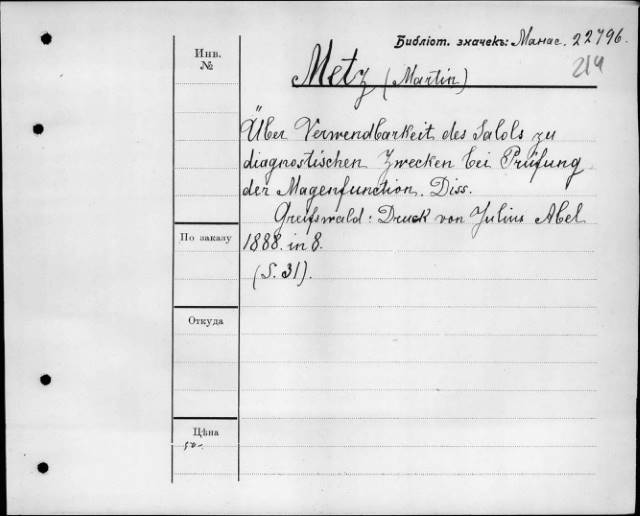 Библіот. значекъ: Манас. 22796.
214
Инв.
№
Metz (Martin)
Über Verwendbarkeit des Salols zu
diagnostischen Zwecken bei Prüfung
der Magenfunction. Diss.
Greifswald: Druck von Julius Abel
По заказу
1888. in 8.
(S. 31).
Откуда
Цѣна
50-.